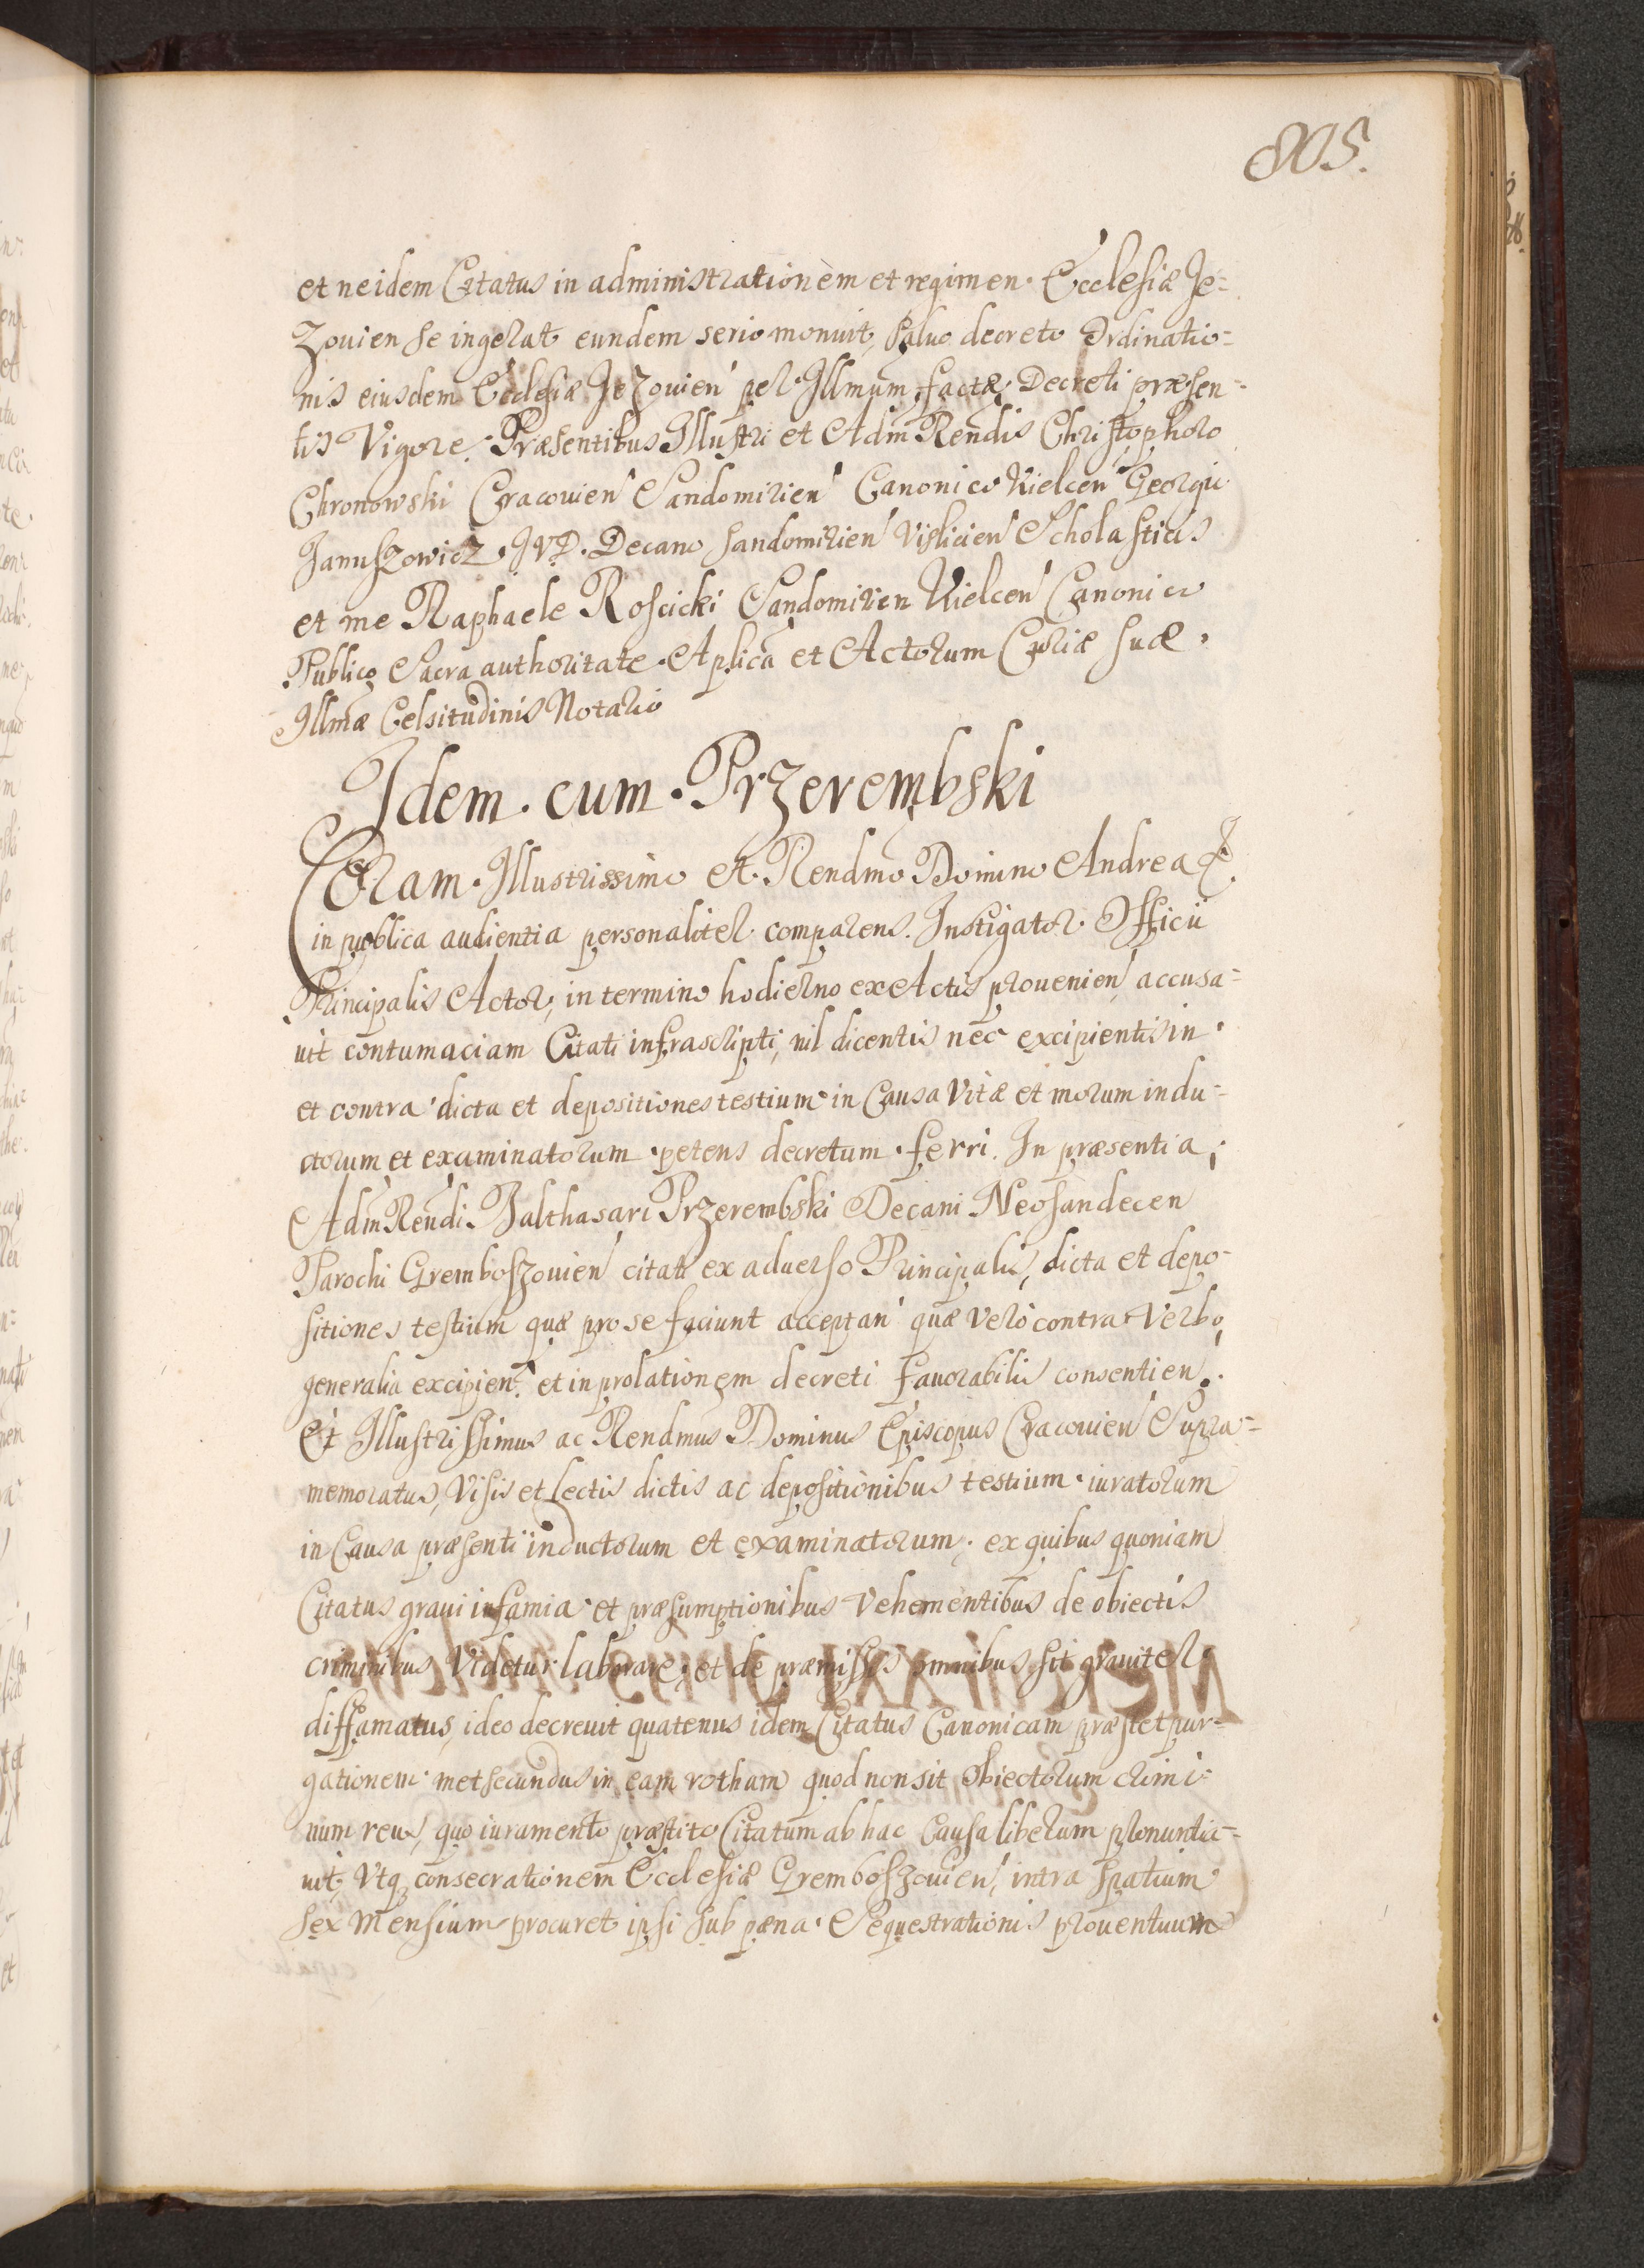 805.
et ne idem Citatus in administrationem et regimen. Ecclesiæ Je=
zouien se ingerat eundem serio monuit, saluo decreto Ordinatio=
nis eiusdem Ecclesiæ Jezouien per Illmum factæ, Decreti præsen=
tis Vigore. Præsentibus Illustri et Adm Rendis Christophoro
Chronowski Cracouien Sandomirien Canonico Kielcen Georgio
Januszowicz JVD. Decano Sandomirien Vislicien Scholastico
et me Raphaele Roscicki Sandomirien Kielcen Canonico
Publico Sacra authoritate Aplica et Actorum Curiæ suæ
Illmæ Celsitudinis Notario
Idem cum Przerembski
Coram Illustrissimo et Rendmo Domino Andrea &.
in publica audientia personaliter comparens. Instigator Officii
Principalis Actor, in termino hodierno ex Actis prouenien accusa=
uit contumaciam Citati infrascripti, nil dicentis nec excipientis in
et contra dicta et depositiones testium in Causa Vitæ et morum indu=
ctorum et examinatorum petens decretum ferri. In præsentia
Adm Rendi Balthasari Przerembski Decani Neosandecen
Parochi Gremboszouien citati ex aduerso Principalis, dicta et depo=
sitiones testium quæ pro se faciunt acceptan quæ vero contra verbo
generalia excipien. et in prolationem decreti fauorabilis consentien.
Et Illustrissimus ac Rendmus Dominus Episcopus Cracouien Supra=
memoratus, Visis et lectis dictis ac depositionibus testium iuratorum
in Causa præsenti inductorum et examinatorum, ex quibus quoniam
Citatus graui infamia et præsumptionibus vehementibus de obiectis
criminibus Videtur laborare, et de præmissis omnibus sit grauiter
diffamatus, ideo decreuit quatenus idem Citatus Canonicam præstet pur=
gationem metsecundus in eam rotham quod non sit obiectorum crimi=
num reus, quo iuramento præstito Citatum ab hac Causa liberum pronuntia=
uit, Vtq consecrationem Ecclesiæ Gremboszouien, intra spatium
sex Mensium procuret ipsi sub pæna Sequestrationis prouentuum